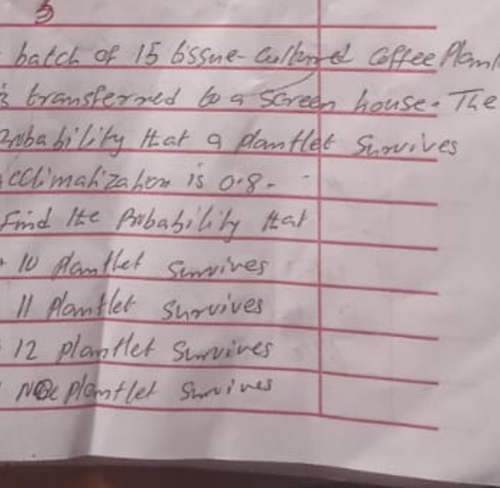 3
batch of 15 tissue-cultured Coffee Plantl
is transferred to a screen house. The
robability that a plantlet Survives
cclimatization is 0.8.
Find the Probability that
10 plantlet survives
11 plantlet survives
12 plantlet survives
No plantlet survives